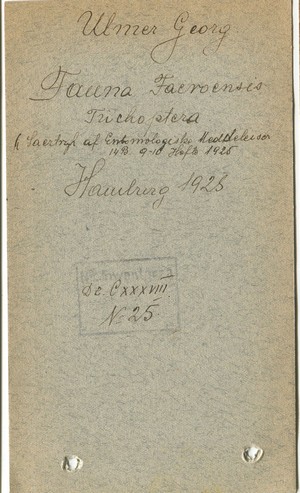 Ulmer Georg
Fauna Faeroensis
Trichoptera
Saertryk af Entomologiske Meddelelser
14B. 9-10 Hefte 1925
Hamburg 1925
De. CXXXVIII
№ 25